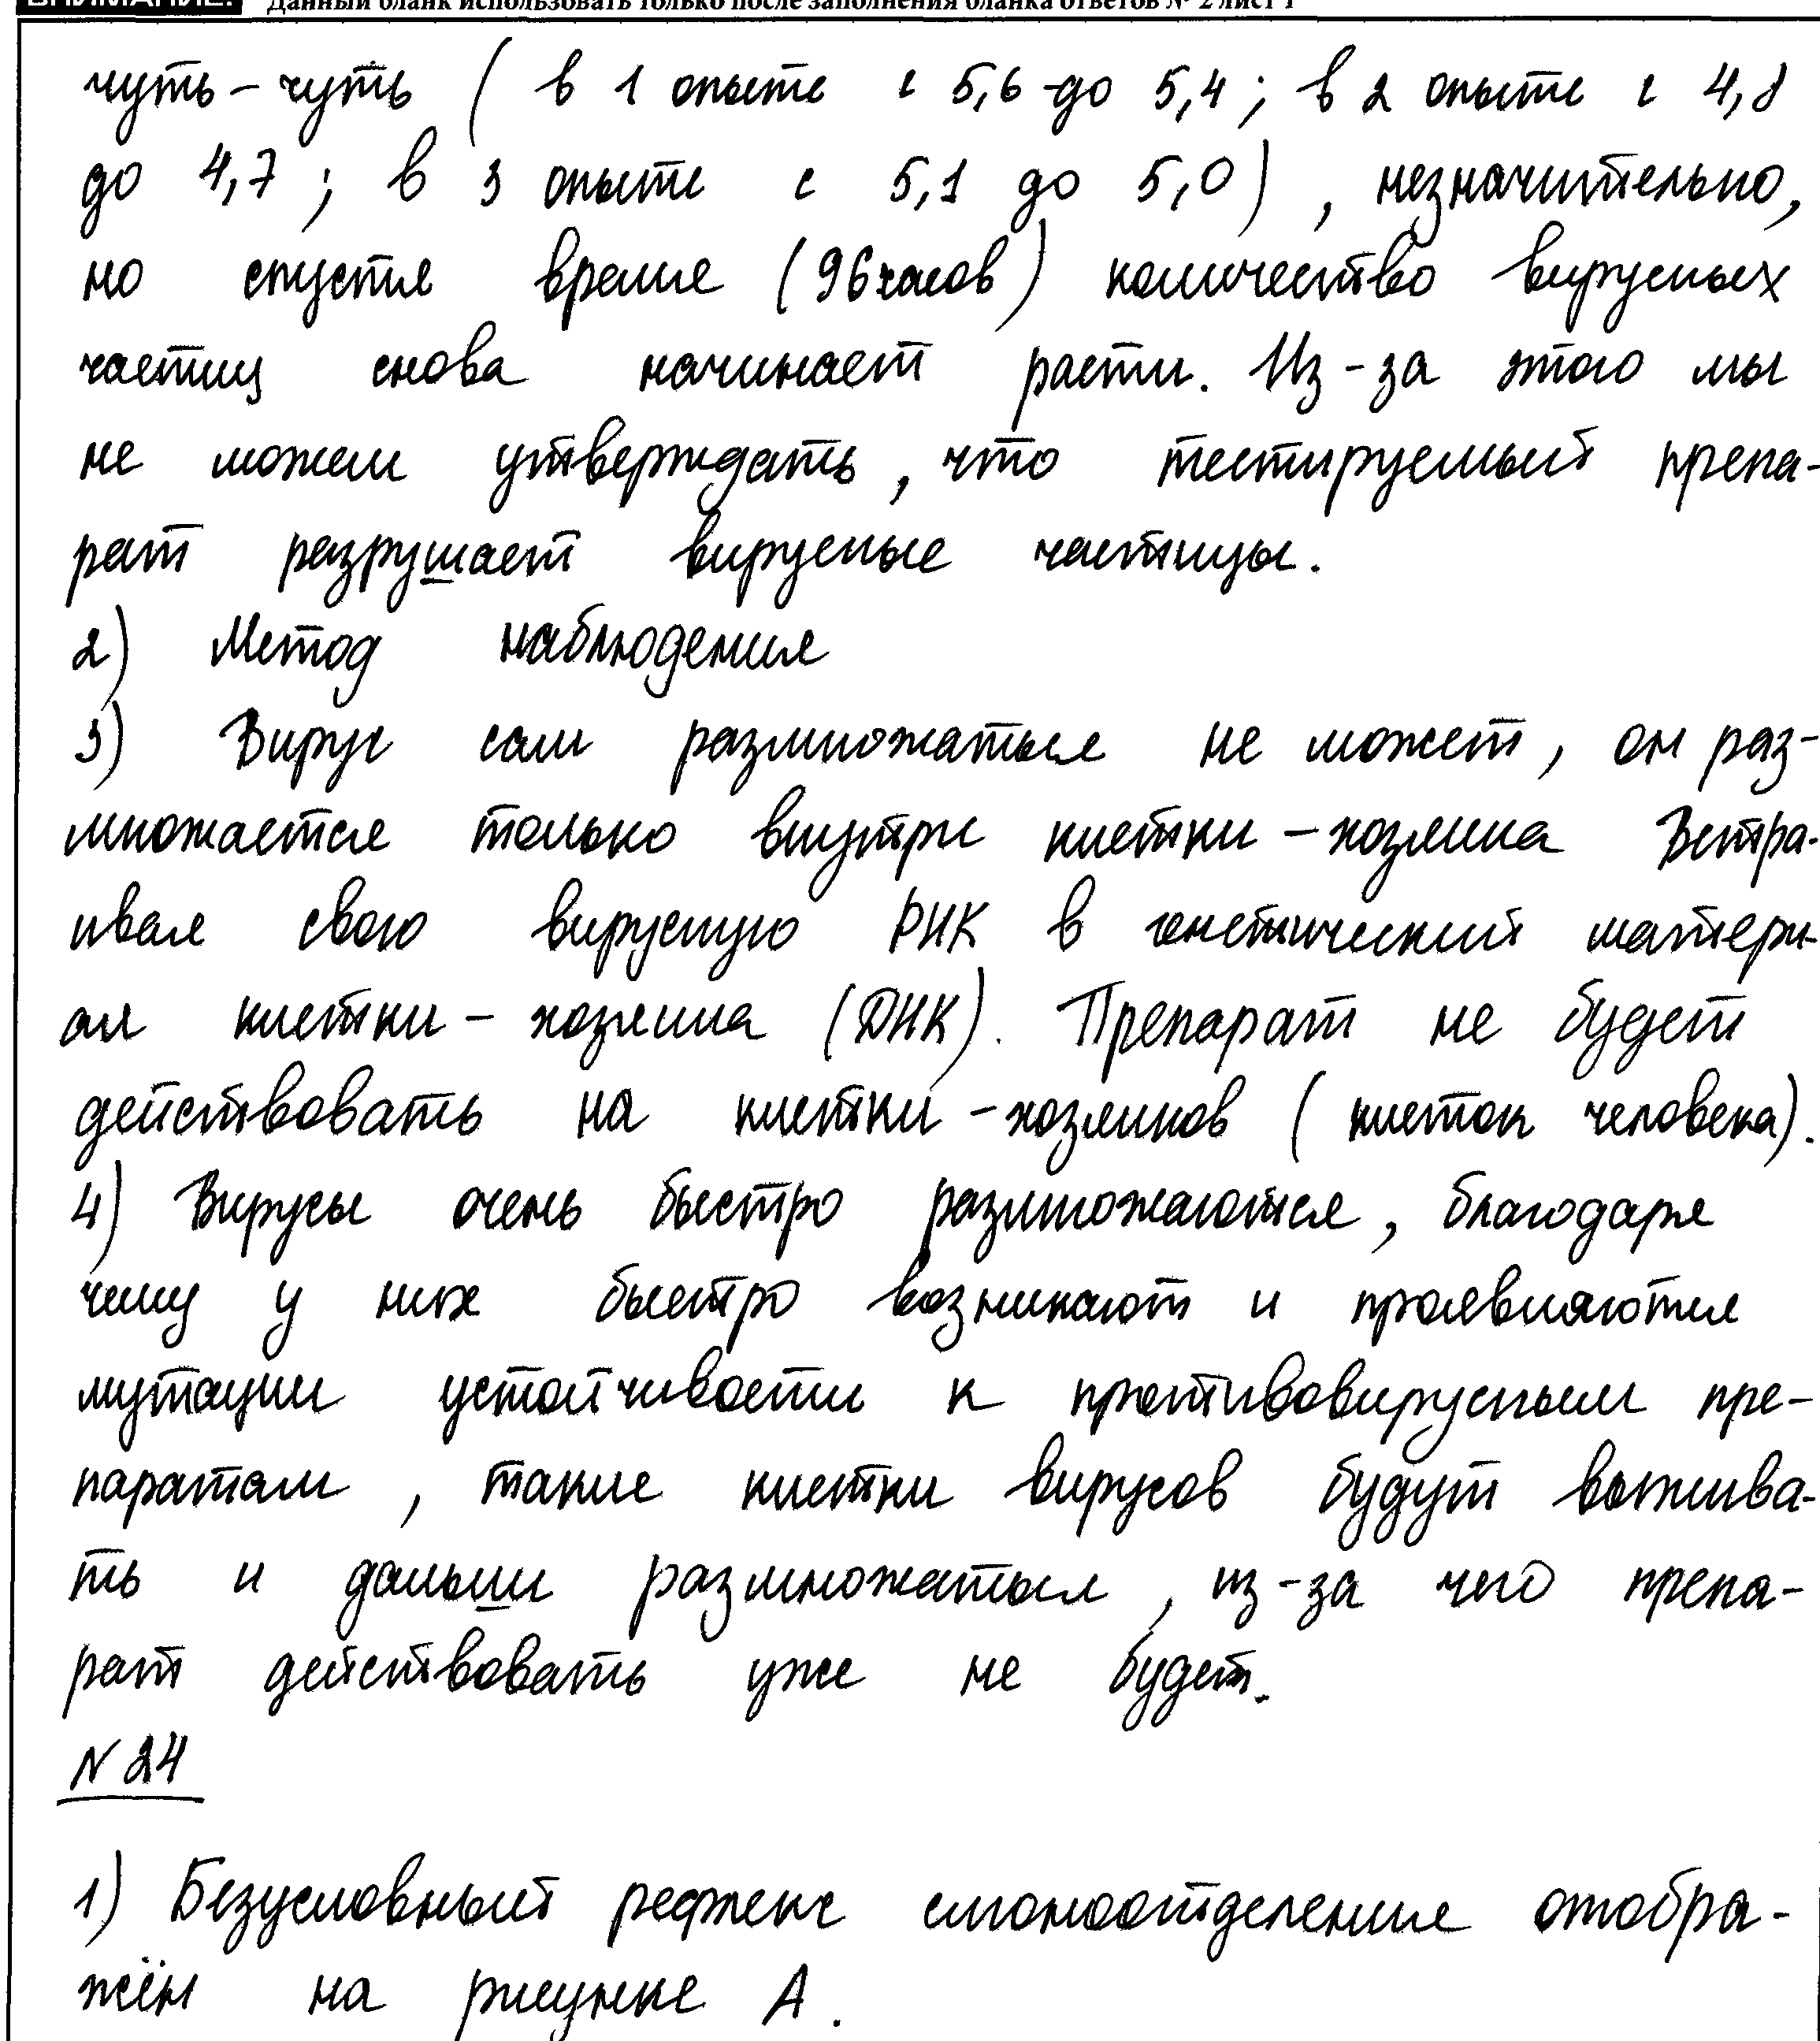 ВНИМАНИЕ! Данный бланк использовать только после заполнения бланка ответов № 2 лист 1
чуть-чуть (в 1 опыте с 5,6 до 5,4; в 2 опыте с 4,8
до 4,7; в 3 опыте с 5,1 до 5,0), незначительно,
но спустя время (96 часов) количество вирусных
частиц снова начинает расти. Из-за этого мы
не можем утверждать, что тестируемый препа-
рат разрушает вирусные частицы.
2) Метод наблюдения
3) Вирус сам размножаться не может, он раз-
множается только внутри клетки-хозяина Встра-
ивая свою вирусную РНК в генетический матери-
ал клетки-хозяина (ДНК). Препарат не будет
действовать на клетки-хозяинов (клеток человека).
4) Вирусы очень быстро размножаются, благодаря
чему у них быстро возникают и проявляются
мутации устойчивости к противовирусным пре-
паратам, такие клетки вирусов будут выжива-
ть и дальши размножаться, из-за чего препа-
рат действовать уже не будет.
N 24
1) Безусловный рефлекс слюноотделение отобра-
жён на рисунке А.